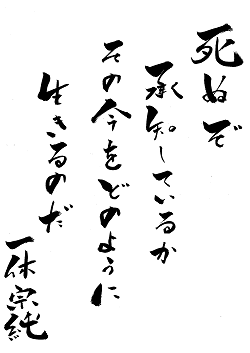 死ぬぞ
承知しているか
その今をどのように
生きるのだ
一休宗純